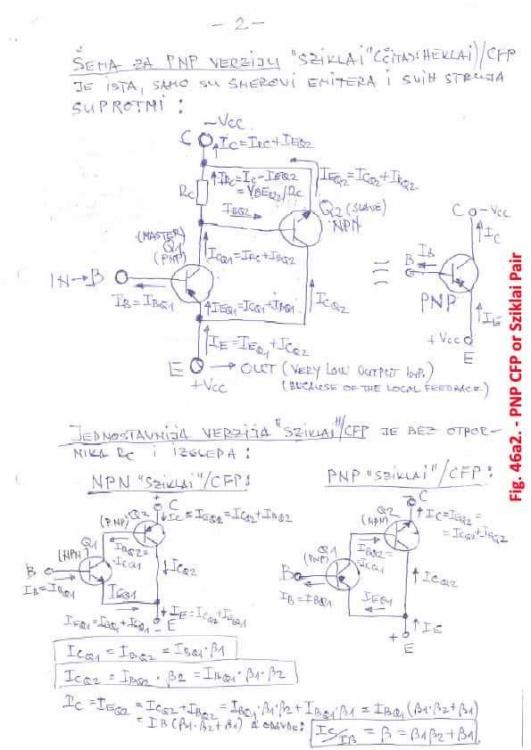 - 2 -
ŠEMA ZA PNP VERZIJU "SZIKLAI" (ČITAJ: ŠEKLAI)/CFP
JE ISTA, SAMO SU SMEROVI EMITERA I SVIH STRUJA
SUPROTNI:
-Vcc
C
Ic=IRC+IEQ2
IRC=Ic-IEQ2
=VBEQ2/Rc
Rc
IEQ2=ICQ2+IBQ2
IBQ2
Q2 (SLAVE)
NPN
(MASTER)
Q1
(PNP)
ICQ1=IRC+IBQ2
IN→B
IB=IBQ1
IEQ1=ICQ1+IBQ1
ICQ2
IE=IEQ1+ICQ2
E
OUT (VERY LOW OUTPUT IMP.)
(BECAUSE OF THE LOCAL FEEDBACK)
+Vcc
C -Vcc
Ic
IB
B
PNP
IE
+Vcc
E
Fig. 46a2. - PNP CFP or Sziklai Pair
JEDNOSTAVNIJA VERZIJA "SZIKLAI"/CFP JE BEZ OTPOR-
NIKA Rc I IZGLEDA:
NPN "SZIKLAI"/CFP:
+ C
Q2
(PNP)
Ic=IEQ2=ICQ2+IBQ2
IBQ2=
ICQ1
Q1
(NPN)
ICQ2
B
IB=IBQ1
IEQ1
IEQ1=IBQ1+ICQ1
IE=ICQ2+IEQ1
- E
PNP "SZIKLAI"/CFP:
- C
Q2
(NPN)
Ic=IEQ2=
=ICQ2+IBQ2
IBQ2=
ICQ1
Q1
(PNP)
ICQ2
B
IB=IBQ1
IEQ1
IE
+ E
ICQ1=IBQ2=IBQ1·β1
ICQ2=IBQ2·β2=IBQ1·β1·β2
Ic=IEQ2=ICQ2+IBQ2=IBQ1·β1·β2+IBQ1·β1=IBQ1(β1·β2+β1)
=IB(β1·β2+β1) A ODAVDE: Ic/IB=β=β1β2+β1.